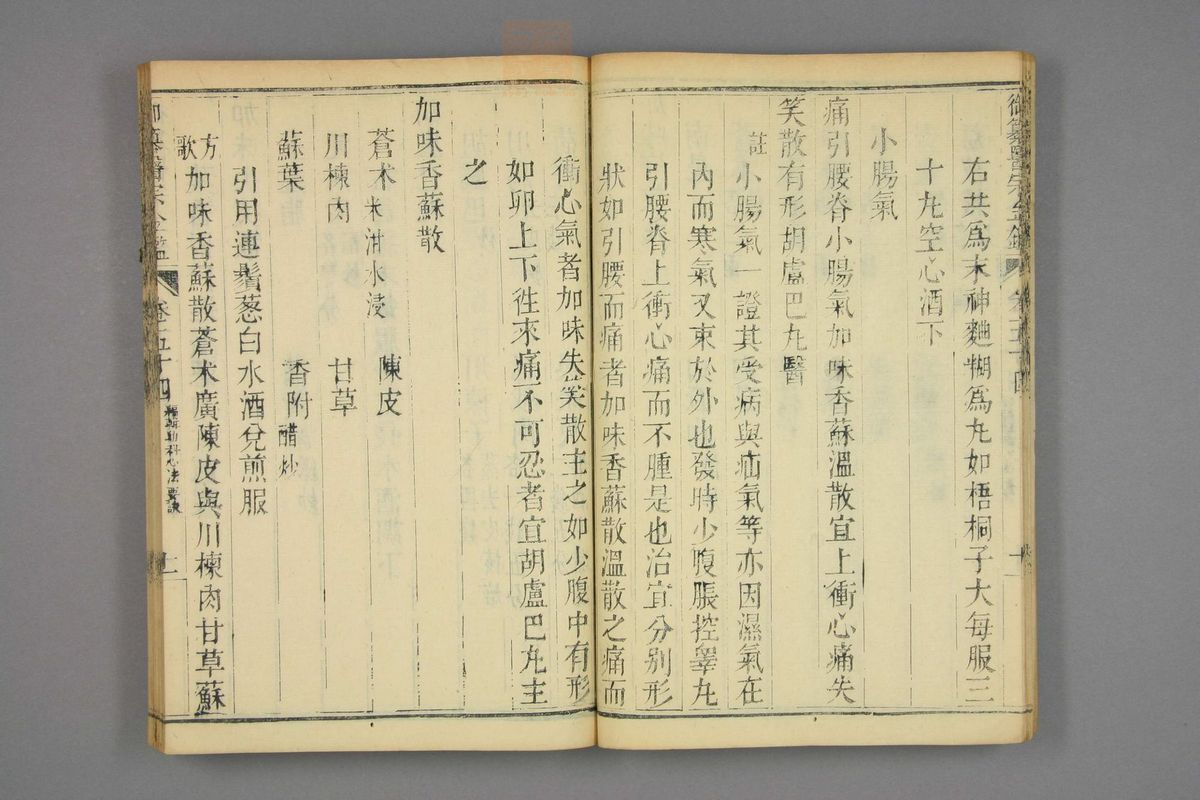 御纂醫宗金鑑 卷五十四 十
右共爲末神麯糊爲丸如梧桐子大每服三
十丸空心酒下
小腸氣
痛引腰脊小腸氣加味香蘇溫散宜上衝心痛失
笑散有形胡盧巴丸醫
註 小腸氣一證其受病與疝氣等亦因濕氣在
內而寒氣又束於外也發時少腹脹控睾丸
引腰脊上衝心痛而不腫是也治宜分别形
狀如引腰而痛者加味香蘇散溫散之痛而
衝心氣者加味失笑散主之如少腹中有形
如卵上下徃來痛不可忍者宜胡盧巴丸主
之
加味香蘇散
蒼术 米泔水浸 陳皮
川楝肉 甘草
蘇葉 香附 醋炒
引用連鬚葱白水酒兌煎服
方歌 加味香蘇散蒼术廣陳皮與川楝肉甘草蘇
御纂醫宗金鑑 卷五十四 編輯幼科心法要訣